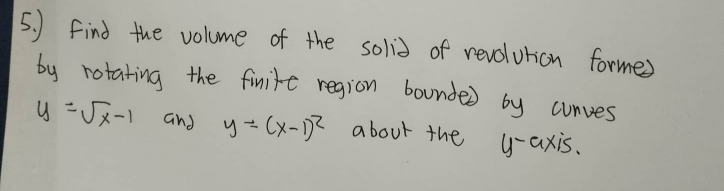 5.) Find the volume of the solid of revolution formed
by rotating the finite region bounded by curves
y = √x-1 and y = (x-1)² about the y-axis.